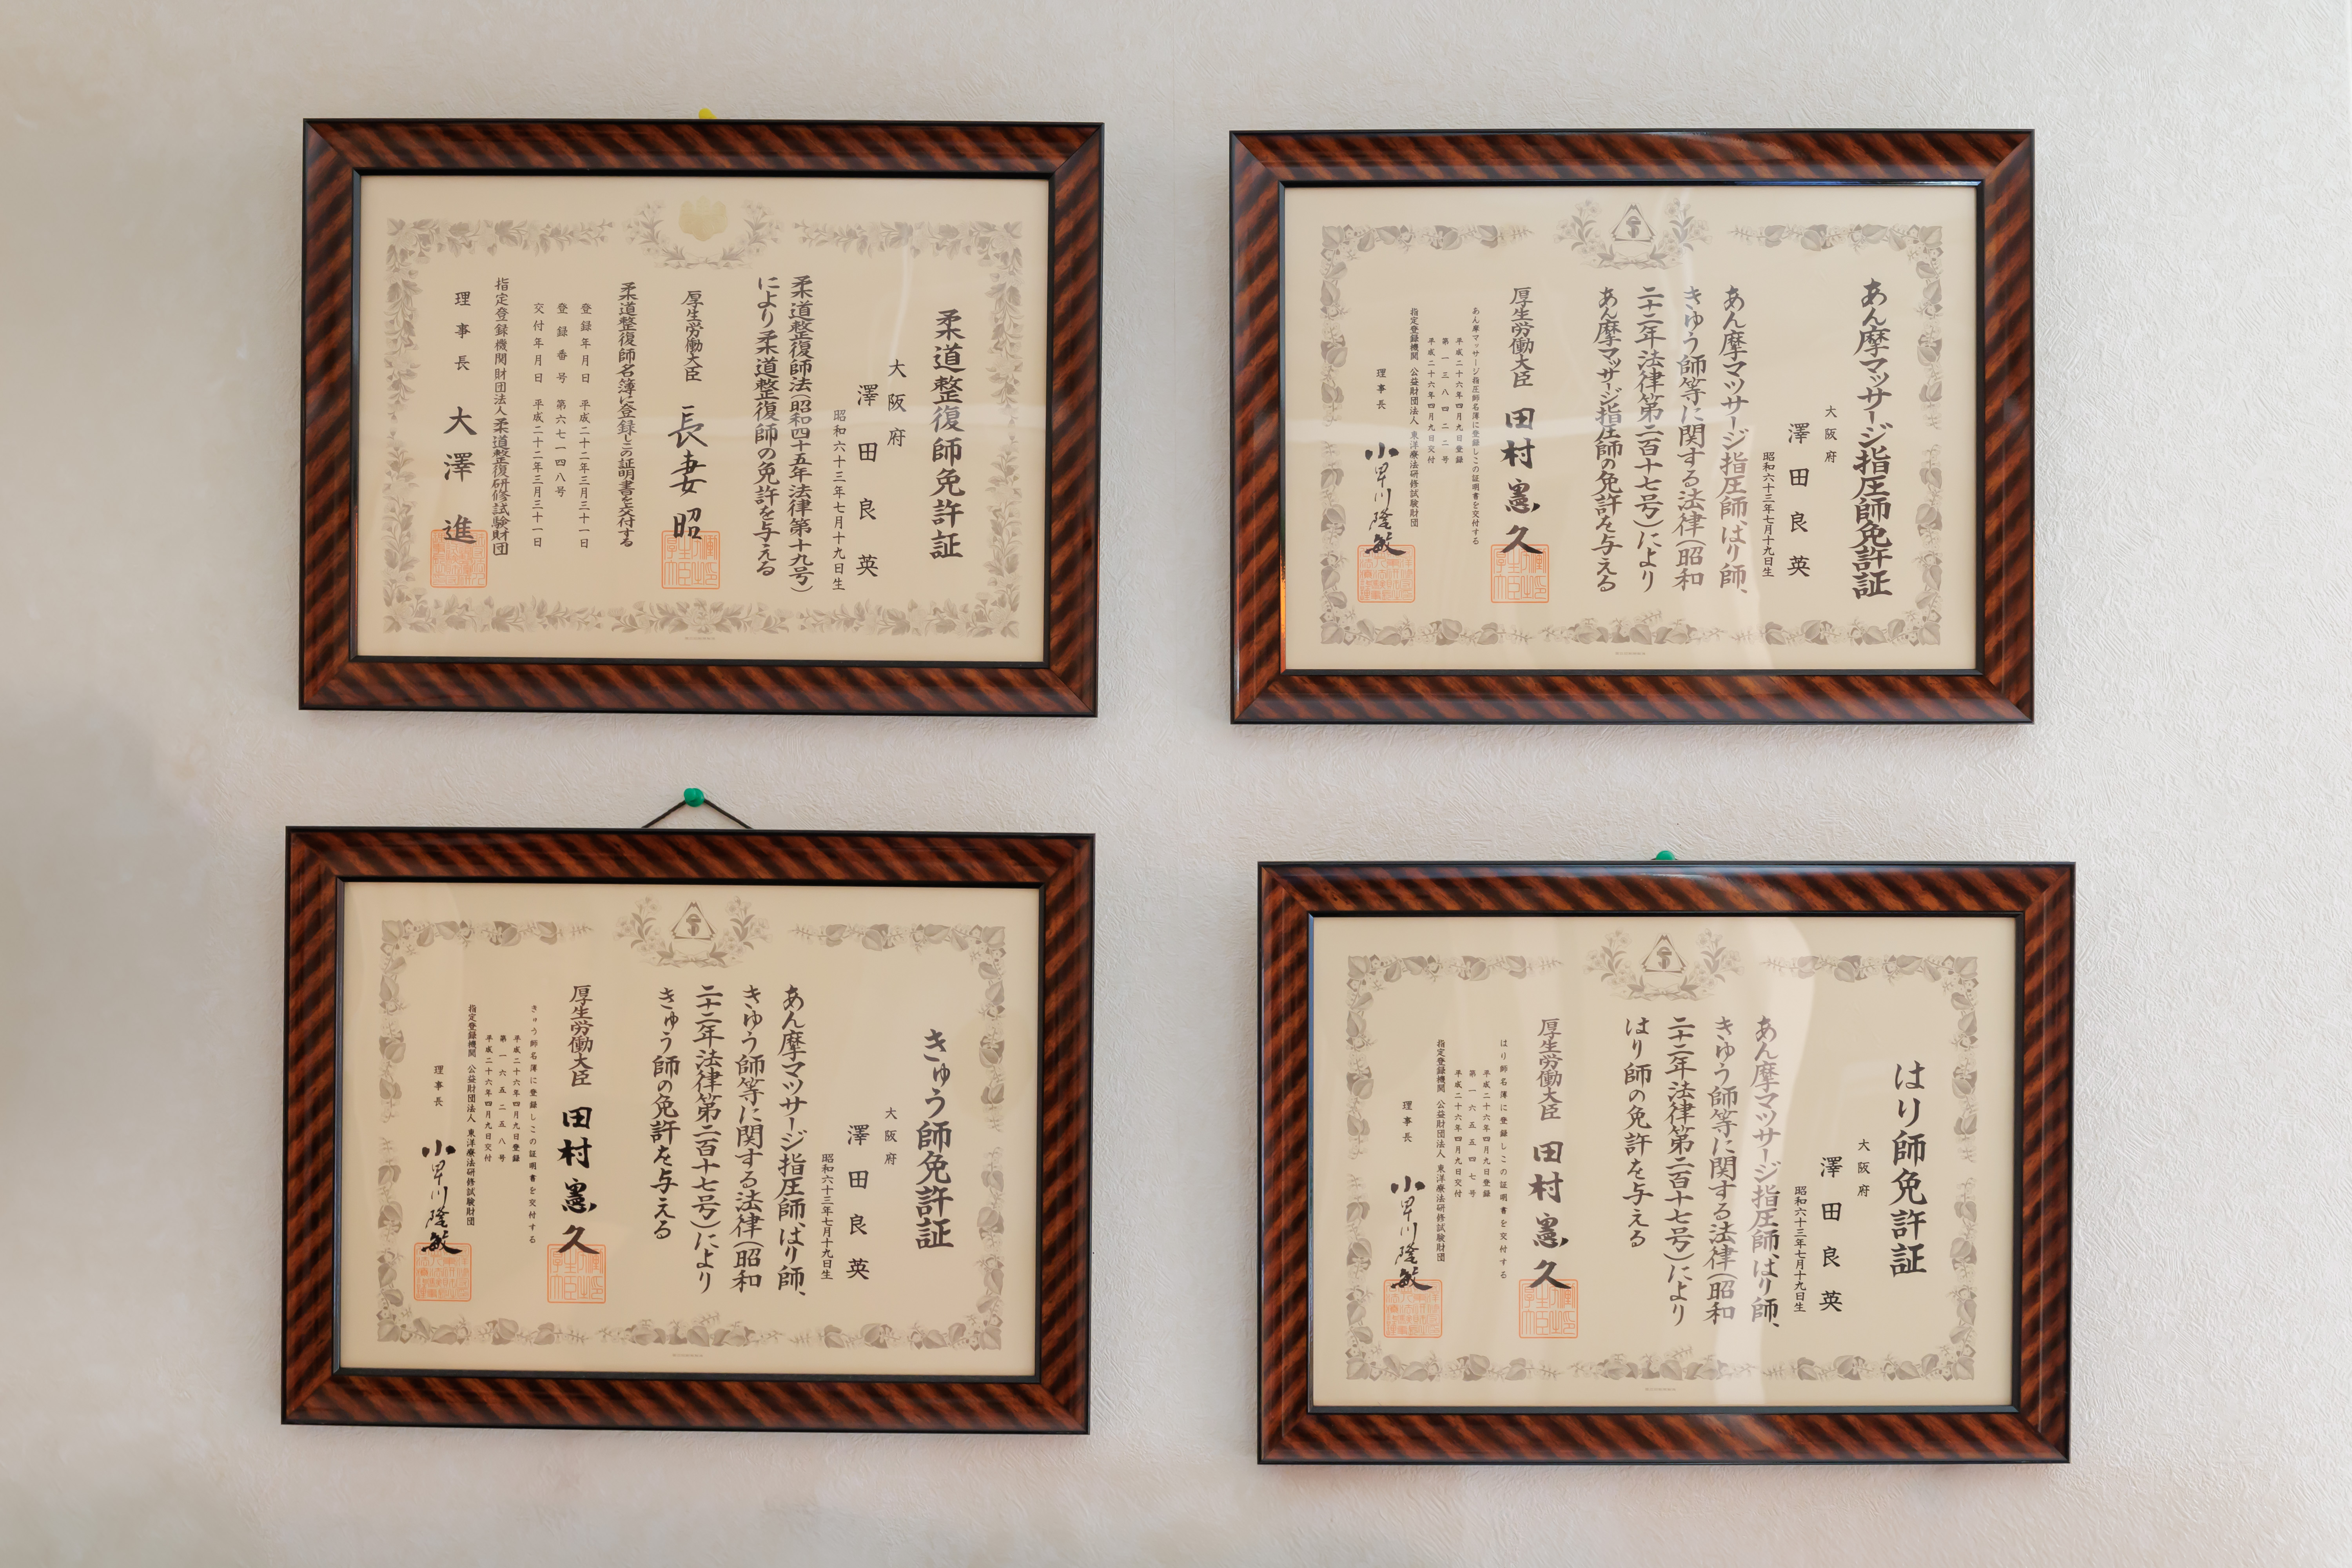 柔道整復師免許証
大阪府
澤田良英
昭和六十三年七月十九日生
柔道整復師法(昭和四十五年法律第十九号)
により柔道整復師の免許を与える
厚生労働大臣 長妻昭
柔道整復師名簿に登録しこの証明書を交付する
登録年月日 平成二十二年三月三十一日
登録番号 第六七一四八号
交付年月日 平成二十二年三月三十一日
指定登録機関財団法人柔道整復研修試験財団
理事長 大澤進
あん摩マッサージ指圧師免許証
大阪府
澤田良英
昭和六十三年七月十九日生
あん摩マツサージ指圧師、はり師、
きゆう師等に関する法律(昭和
二十二年法律第二百十七号)により
あん摩マッサージ指圧師の免許を与える
厚生労働大臣 田村憲久
あん摩マッサージ指圧師名簿に登録しこの証明書を交付する
平成二十六年四月九日登録
第一三八四二二号
平成二十六年四月九日交付
指定登録機関 公益財団法人 東洋療法研修試験財団
理事長 小早川隆敏
きゅう師免許証
大阪府
澤田良英
昭和六十三年七月十九日生
あん摩マツサージ指圧師、はり師、
きゆう師等に関する法律(昭和
二十二年法律第二百十七号)により
きゅう師の免許を与える
厚生労働大臣 田村憲久
きゅう師名簿に登録しこの証明書を交付する
平成二十六年四月九日登録
第一六五二五八号
平成二十六年四月九日交付
指定登録機関 公益財団法人 東洋療法研修試験財団
理事長 小早川隆敏
はり師免許証
大阪府
澤田良英
昭和六十三年七月十九日生
あん摩マツサージ指圧師、はり師、
きゆう師等に関する法律(昭和
二十二年法律第二百十七号)により
はり師の免許を与える
厚生労働大臣 田村憲久
はり師名簿に登録しこの証明書を交付する
平成二十六年四月九日登録
第一六五五四七号
平成二十六年四月九日交付
指定登録機関 公益財団法人 東洋療法研修試験財団
理事長 小早川隆敏